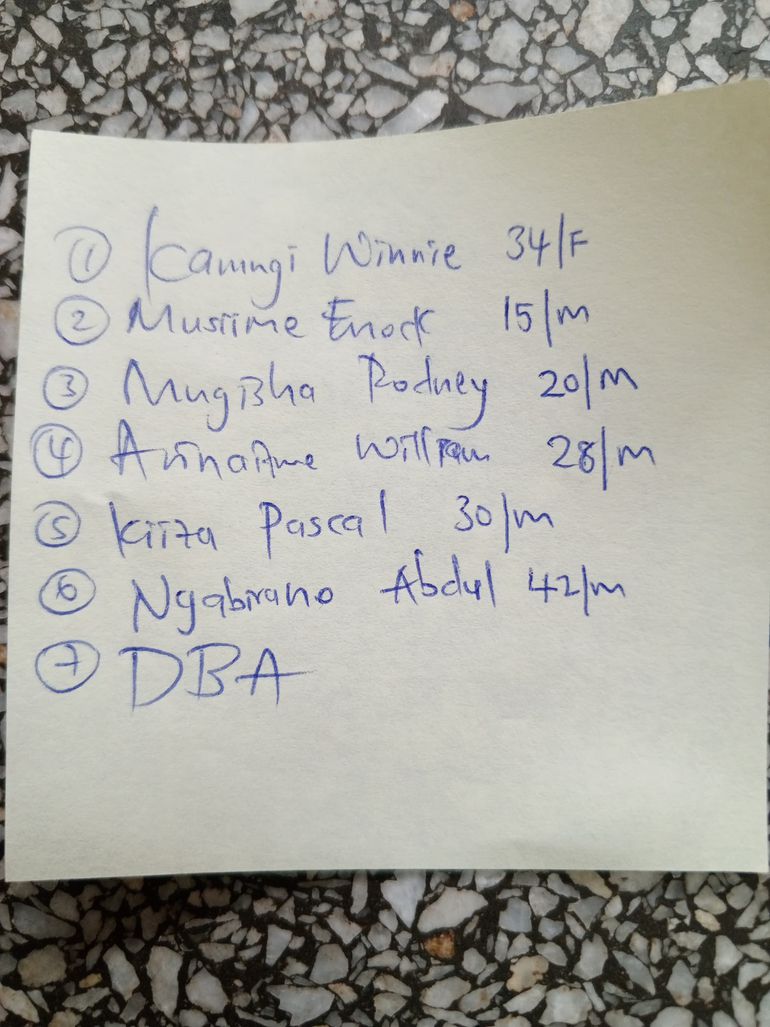 ① Kamugi Winnie 34/F
② Musiime Enock 15/m
③ Mugisha Rodney 20/m
④ Arinaitwe William 28/m
⑤ Kiiza Pascal 30/m
⑥ Ngabirano Abdul 42/m
⑦ DBA